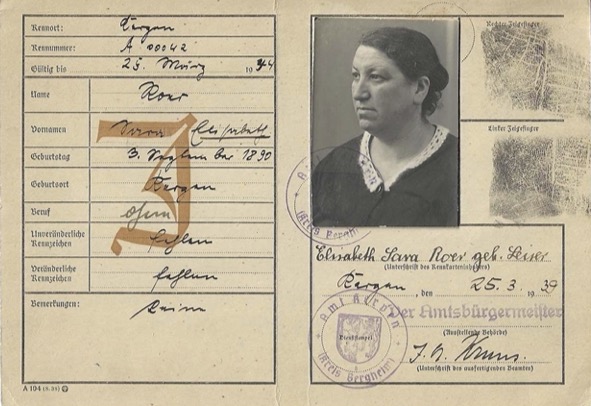 Kennort: Kerpen
Kennummer: A 00042
Gültig bis 25. März 1944
Name Roer
Vornamen Sara Elisabeth
Geburtstag 3. September 1890
Geburtsort Kerpen
Beruf ohne
Unveränderliche Kennzeichen fehlen
Veränderliche Kennzeichen fehlen
Bemerkungen: Keine
J
A 104 (8. 38)
Rechter Zeigefinger
Linker Zeigefinger
(Kreis Bergheim)
Elisabeth Sara Roer geb. Leiser
(Unterschrift des Kennkarteninhabers)
Kerpen, den 25.3. 1939
Der Amtsbürgermeister
(Ausstellende Behörde)
(Unterschrift des ausfertigenden Beamten)
Amt Kerpen
Dienstsiegel
(Kreis Bergheim)